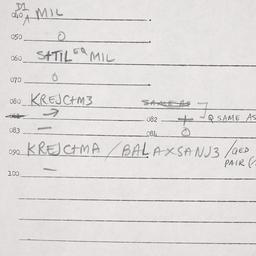 D1
040 A MIL
050 0
060 S+TIL EQ MIL
070 0
080 KREJC+M3 SAME AS
→ 082 + Q SAME AS
083 — 084 0
090 KREJC+MA / BALAXSANJ3 / GED
PAIR
100 —